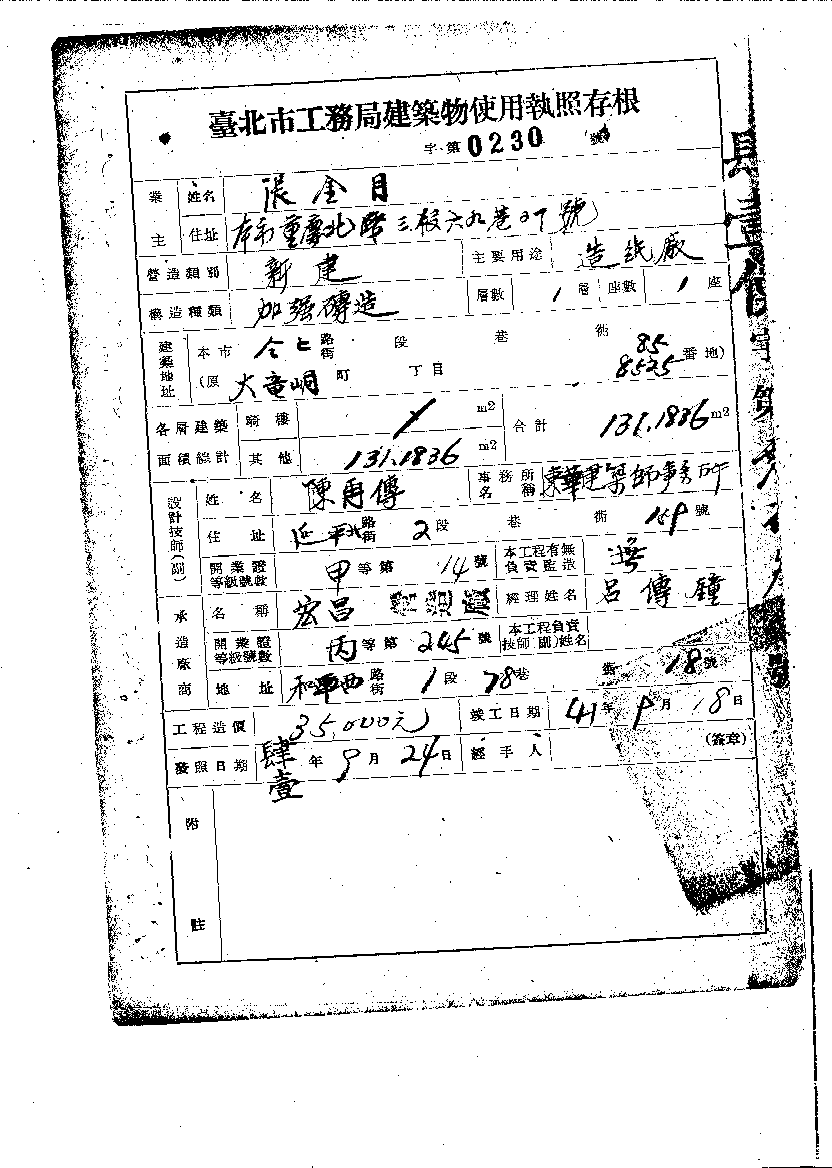 臺北市工務局建築物使用執照存根
字第0230號
業主 姓名 張金目
住址 本市重慶北路三段六九巷27號
營造類別 新建 主要用途 造紙廠
構造種類 加强磚造 層數 1層 座數 1座
建築地址 本市 路街 段 巷 衖 85
(原 大竜峒町 丁目 8525番地)
各層建築面積總計 騎樓 m2 合計 131.1836 m2
其他 131.1836 m2
設計技師(副) 姓名 陳再傳 事務所名稱 東華建築師事務所
住址 延平北路街 2段 巷 衖 159號
開業證等級號數 甲等第 14號 本工程有無負責監造 無
承造廠商 名稱 宏昌 經理姓名 呂傳鐘
開業證等級號數 丙等第 245號 本工程負責技師(副)姓名
地址 和平西路街 1段 78巷 18號
工程造價 35,000元 竣工日期 41年9月18日
發照日期 肆壹年9月24日 經手人 (簽章)
附註